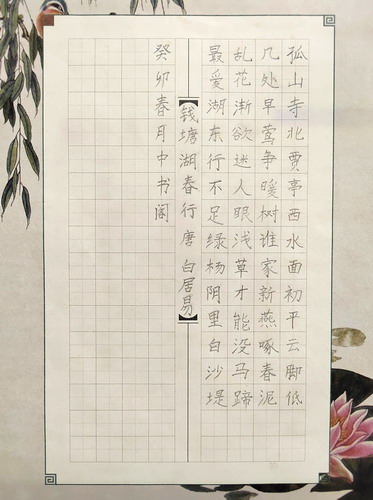 孤山寺北贾亭西水面初平云脚低
几处早莺争暖树谁家新燕啄春泥
乱花渐欲迷人眼浅草才能没马蹄
最爱湖东行不足绿杨阴里白沙堤
【钱塘湖春行唐 白居易】
癸卯春月中书阁